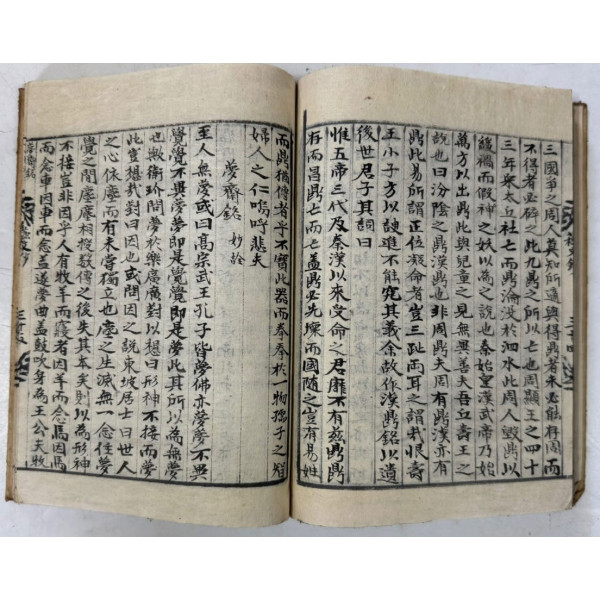 三國爭之周人莫知所適與得鼎者未必能存周而
不得者必碎之此九鼎之所以亡也周顯王之四十
三年宋太丘社亡而鼎淪沒於泗水此周人毁鼎以
緩禍而假神之妖以為之說也秦始皇漢武帝乃始
萬方以出鼎此與兒童之見無異善夫吾丘壽王之
說也曰汾陰之鼎漢鼎也非周鼎夫周有鼎漢亦有
鼎此易所謂正位凝命者豈三趾兩耳之謂哉恨壽
王小子方以諛進不能究其義余故作漢鼎銘以遺
後世君子其詞曰
惟五帝三代及秦漢以來受命之君靡不有玆鼎鼎
存而昌鼎亡而亡盖鼎必先壞而國隨之豈有易姓
而鼎猶傳者乎不寶此器而拳拳於一物孺子之智
婦人之仁嗚呼悲夫
夢齋銘 妙於
至人無夢或曰高宗武王孔子皆夢佛亦夢夢不異
覺覺不異夢夢即是覺覺即是夢此其所以為無夢
也歟衛玠問夢於樂廣廣對以想曰形神不接而夢
此豈想哉對曰因也或問因之說東坡居士曰世人
之心依塵而有未嘗獨立也塵之生滅無一念住夢
覺之間塵塵相授數傳之後失其本矣則以為形神
不接豈非因乎人有牧羊而寢者因羊而念馬因馬
而念車因車而念盖遂夢曲盖鼓吹身為王公夫牧